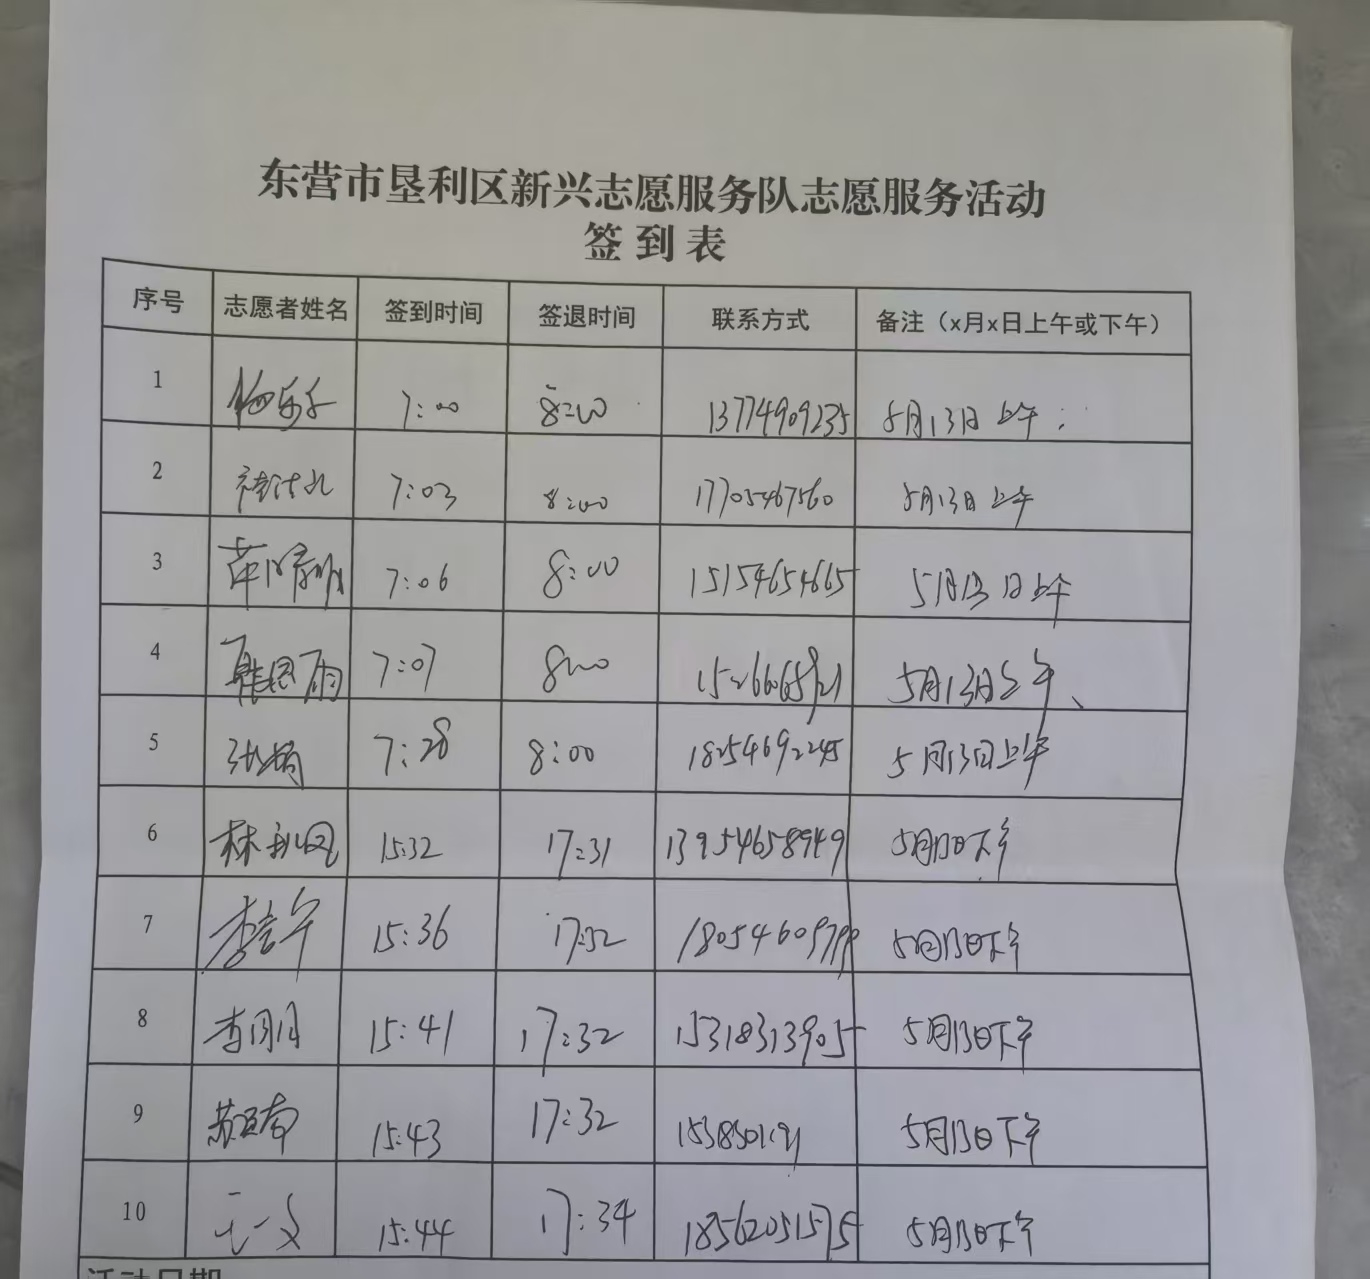 东营市垦利区新兴志愿服务队志愿服务活动
签到表
序号 志愿者姓名 签到时间 签退时间 联系方式 备注（x月x日上午或下午）
1 7:00 8:00 13774909235 5月13日上午
2 7:03 8:00 17705467560 5月13日上午
3 7:06 8:00 15154654665 5月13日上午
4 7:07 8:00 5月13日上午
5 7:28 8:00 18254692245 5月13日上午
6 林利凤 15:32 17:31 13954658949 5月13日下午
7 15:36 17:32 5月13日下午
8 李明月 15:41 17:32 15318313905 5月13日下午
9 15:43 17:32 5月13日下午
10 15:44 17:34 18562051575 5月13日下午
活动日期